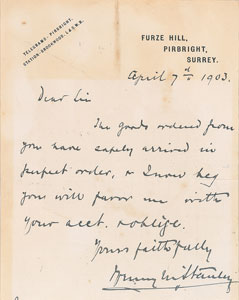 TELEGRAMS - PIRBRIGHT.
STATION - BROOKWOOD. L. & S.W.R.
FURZE HILL,
PIRBRIGHT,
SURREY.
April 7th 1903.
Dear Sir
The goods ordered from
you have safely arrived in
perfect order, & I now beg
you will favor me with
your acct. & oblige.
Yours faithfully
Henry M Stanley